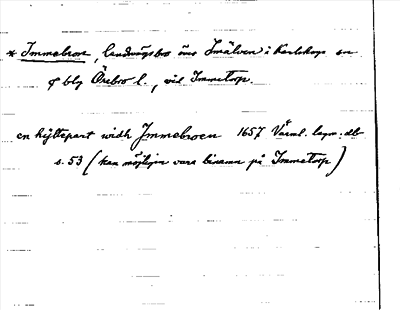 * Immebron, landsvägsbro över Imälven i Karlskoga sn
och blg Örebro l., vid Immetorp.
en hyttepart widh Jmmebroen 1657 Värml. lagm. db
s. 53 (kan möjligen vara binamn på Immetorp)